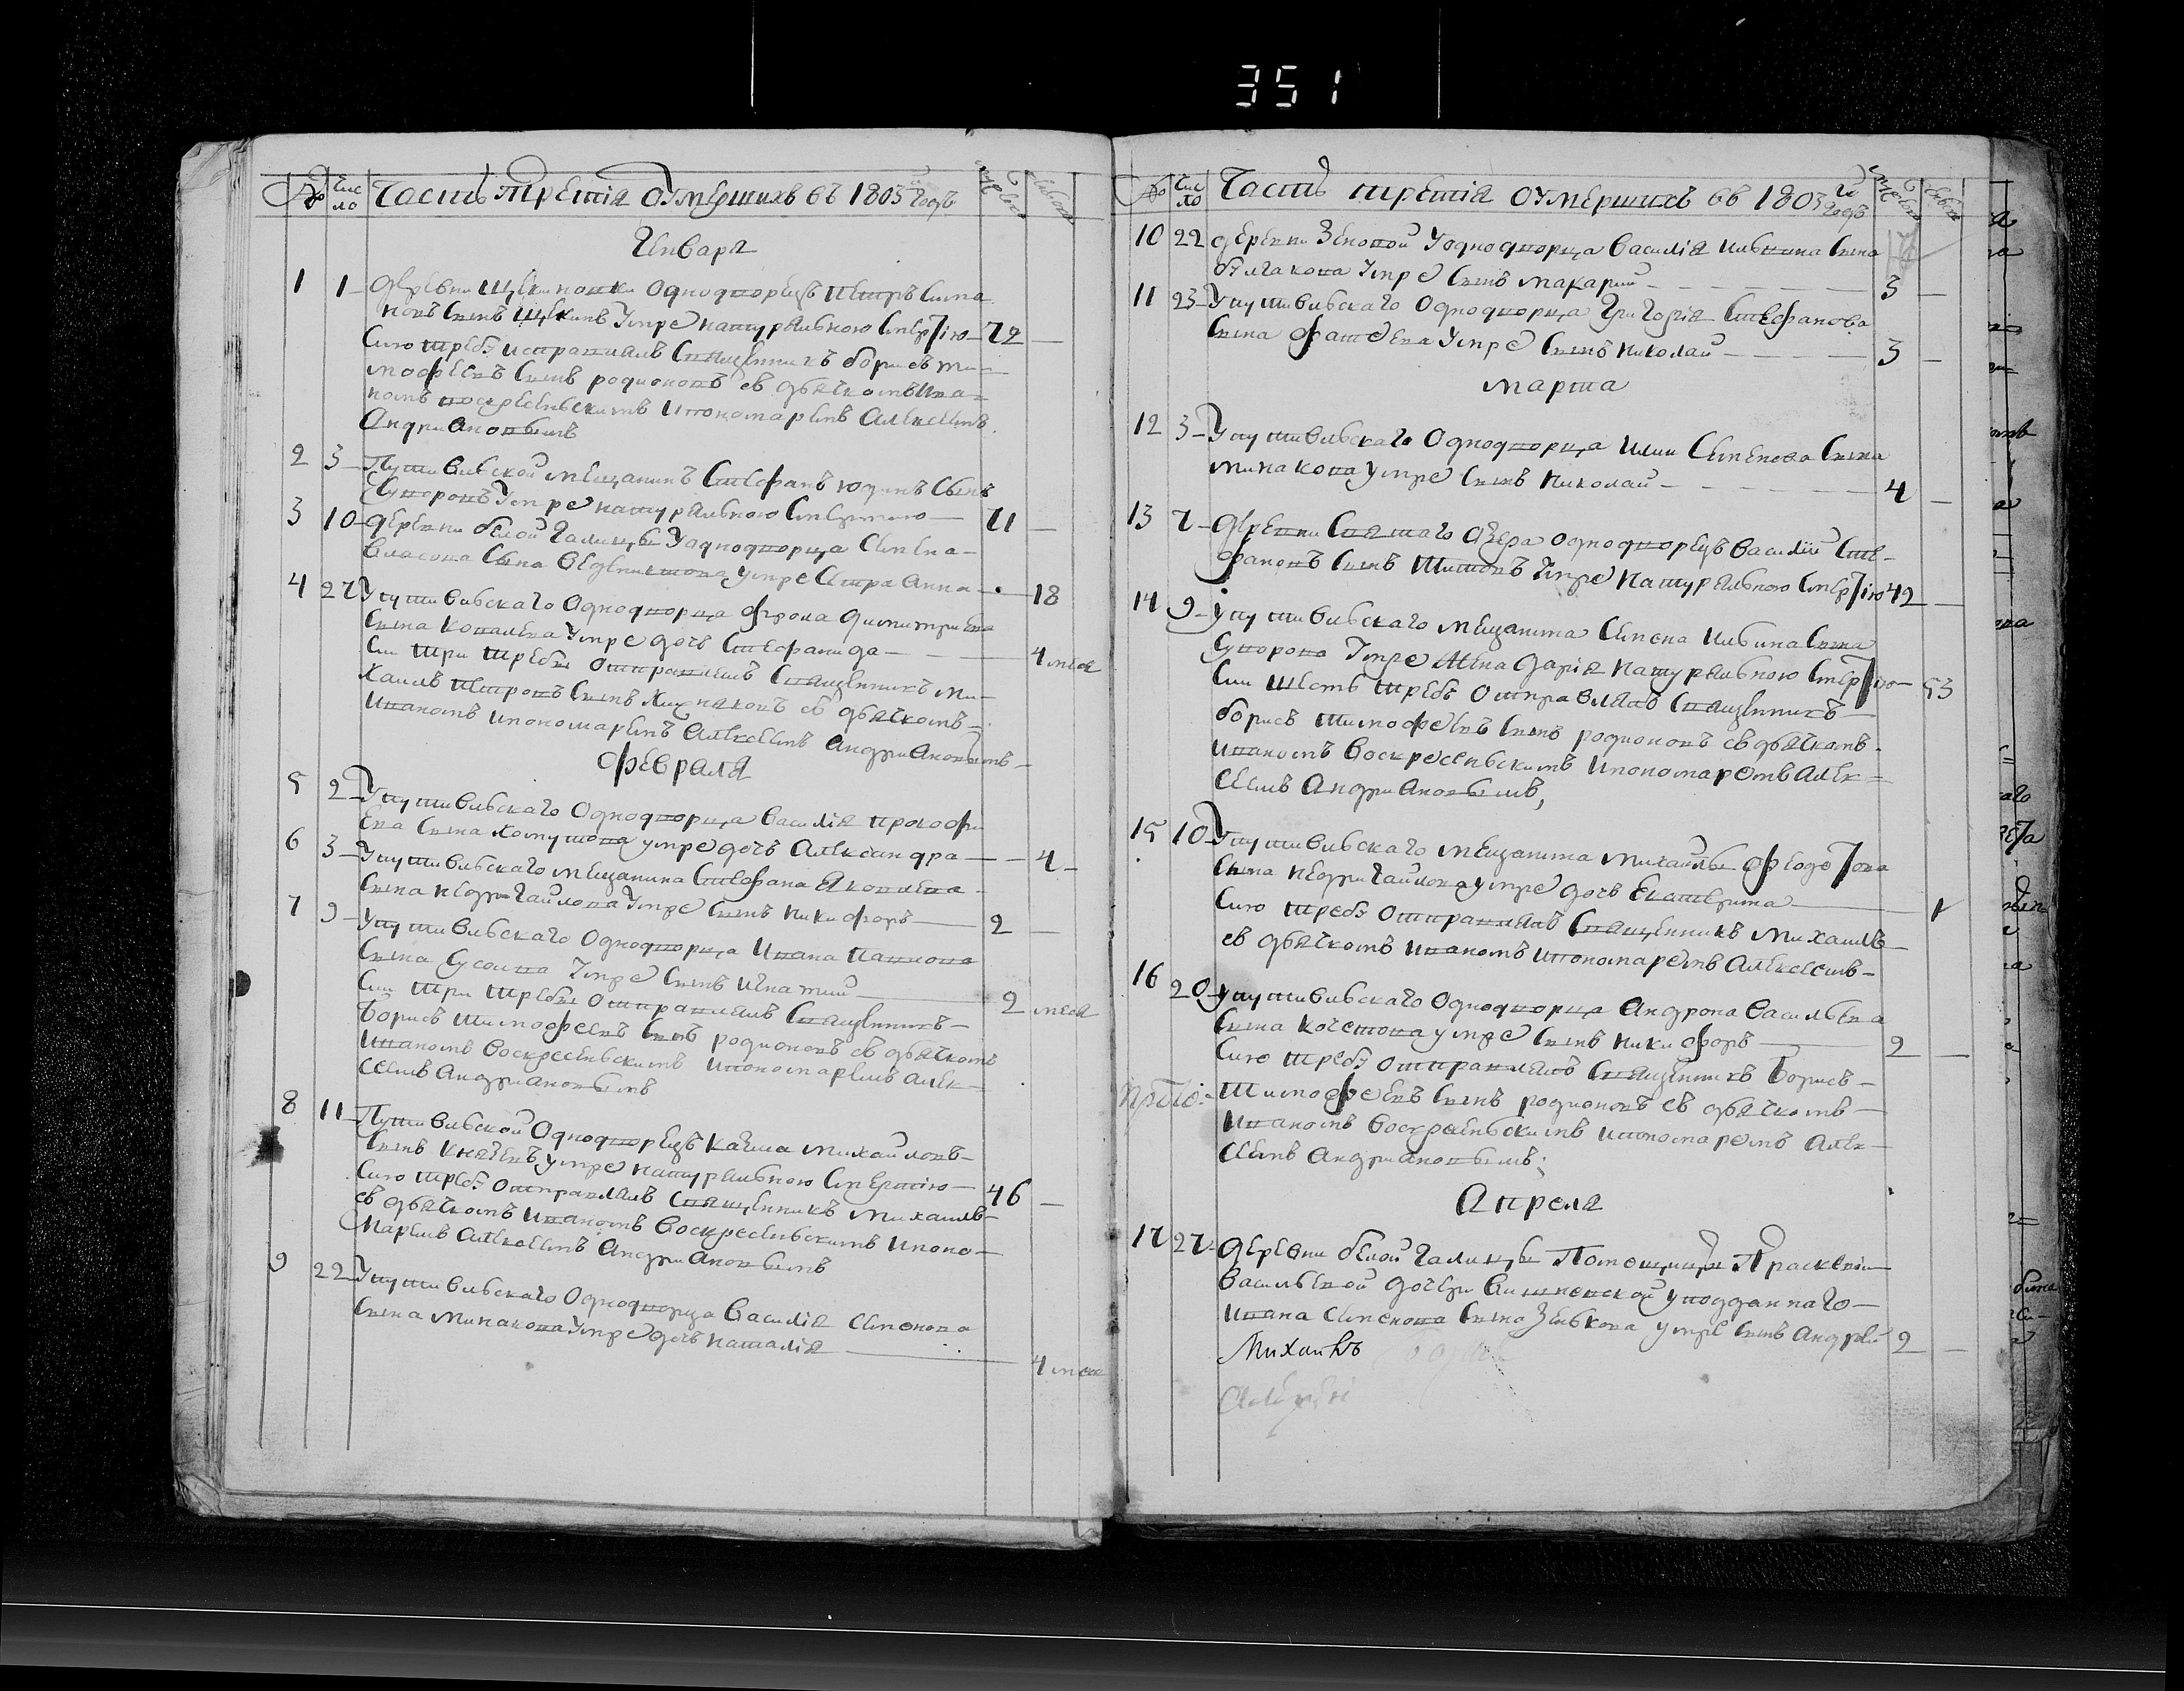 351
№ Чис ло Часть Третіа Оумершихъ въ 1803 годъ
Генваря
1 1 Деревни Щекиновки Однодворецъ Петръ Сима
новъ Сынъ Щекинъ Умре натуральною Смертію 72
Сию требу исправлялъ Священникъ борисъ ти
мофеевъ Сынъ родионовъ съ дьячкомъ Ива
номъ воскресеньскимъ ипономаремъ Алексеемъ
Андриановымъ
2 3 Путивльской мещанинъ Стефанъ юдинъ Сынъ
Суворовъ Умре натуральною Смертию 71
3 10 деревни белой Галицы Уоднодворца Семена
Власова Сына Умре Сестра Анна 18
4 27 Упутивльскаго Однодворца фрола димитриева
Сына ковалева Умре дочь Стефанида 4 меся
Сии Три Требы Отправлялъ Священникъ ми
хаилъ петровъ Сынъ съ дьячкомъ
Иваномъ ипономаремъ Алексеемъ Андриановымъ
февраля
5 2 Упутивльскаго Однодворца Василіа прокофи
ева Сына хомутова умре дочь Александра 4
6 3 Упутивльскаго мещанина Стефана Яковлева
Сына недригайлова Умре Сынъ никифоръ 2
7 9 Упутивльскаго Однодворца Ивана Павлова
Сына Сусоива Умре Сынъ игнатии 2 меся
Сии Три Требы Отправлялъ Священникъ
Борисъ Тимофеевъ Сынъ родионовъ съ дьячкомъ
Иваномъ Воскресеньскимъ ипономаремъ алек
сеемъ Андриановымъ
8 11 Путивльской Однодворецъ Михайловъ
Сынъ Княжевъ умре натуральною Смертію 46
Сию требу отправлялъ Священникъ Михаилъ
съ дьячкомъ Иваномъ Воскресеньскимъ ипоно
маремъ Алексеемъ Андриановымъ
9 22 Упутивльскаго Однодворца Василіа Семенова
Сына Минакова Умре дочь наталіа 4 меся
№ Чис ло Часть третіа Оумершихъ въ 1803 годъ
10 22 деревни Зеновой Уоднодворца Василіа Сына
булгакова Умре Сынъ макарии 3
11 23 Упутивльскаго Однодворца Григоріа Стефанова
Сына фатеева Умре Сынъ николаи 3
марта
12 3 Упутивльскаго Однодворца илии Семенова Сына
минакова умре Сынъ Николаи 4
13 7 Деревни Святаго Озера однодворецъ Василіи Сте
фановъ Сынъ Титовъ Умре натуральною Смертію 42
14 9 Упутивльскаго мещанина Семена Ильина Сына
Суворова Умре Жена Даріа натуральною Смертію 53
Сии шесть требъ Отправлялъ Священникъ
борисъ Тимофеевъ Сынъ родионовъ съ дьячкомъ
Иваномъ Воскресеньскимъ ипономаремъ Алек
сеемъ Андриановымъ
15 10 Упутивльскаго мещанина михаилы федотова
Сына недригайлова умре дочь Екатерина 1
Сию требу отправлялъ Священникъ Михаилъ
съ дьячкомъ Иваномъ ипономаремъ Алексеемъ
16 20 Упутивльскаго Однодворца Андрона Васильева
Сына кочетова умре Сынъ никифоръ 2
Сию требу отправлялъ Священникъ Борисъ
Тимофеевъ Сынъ родионовъ съ дьячкомъ
Иваномъ Воскресеньскимъ ипономаремъ Алек
сеемъ Андриановымъ
Апреля
17 27 деревни белой галицы Помещицы Праскевіи
Васильевой дочери Вишневской уподданнаго
Ивана Семенова Сына Зенькова умре Сынъ Андреи 2
Михаилъ